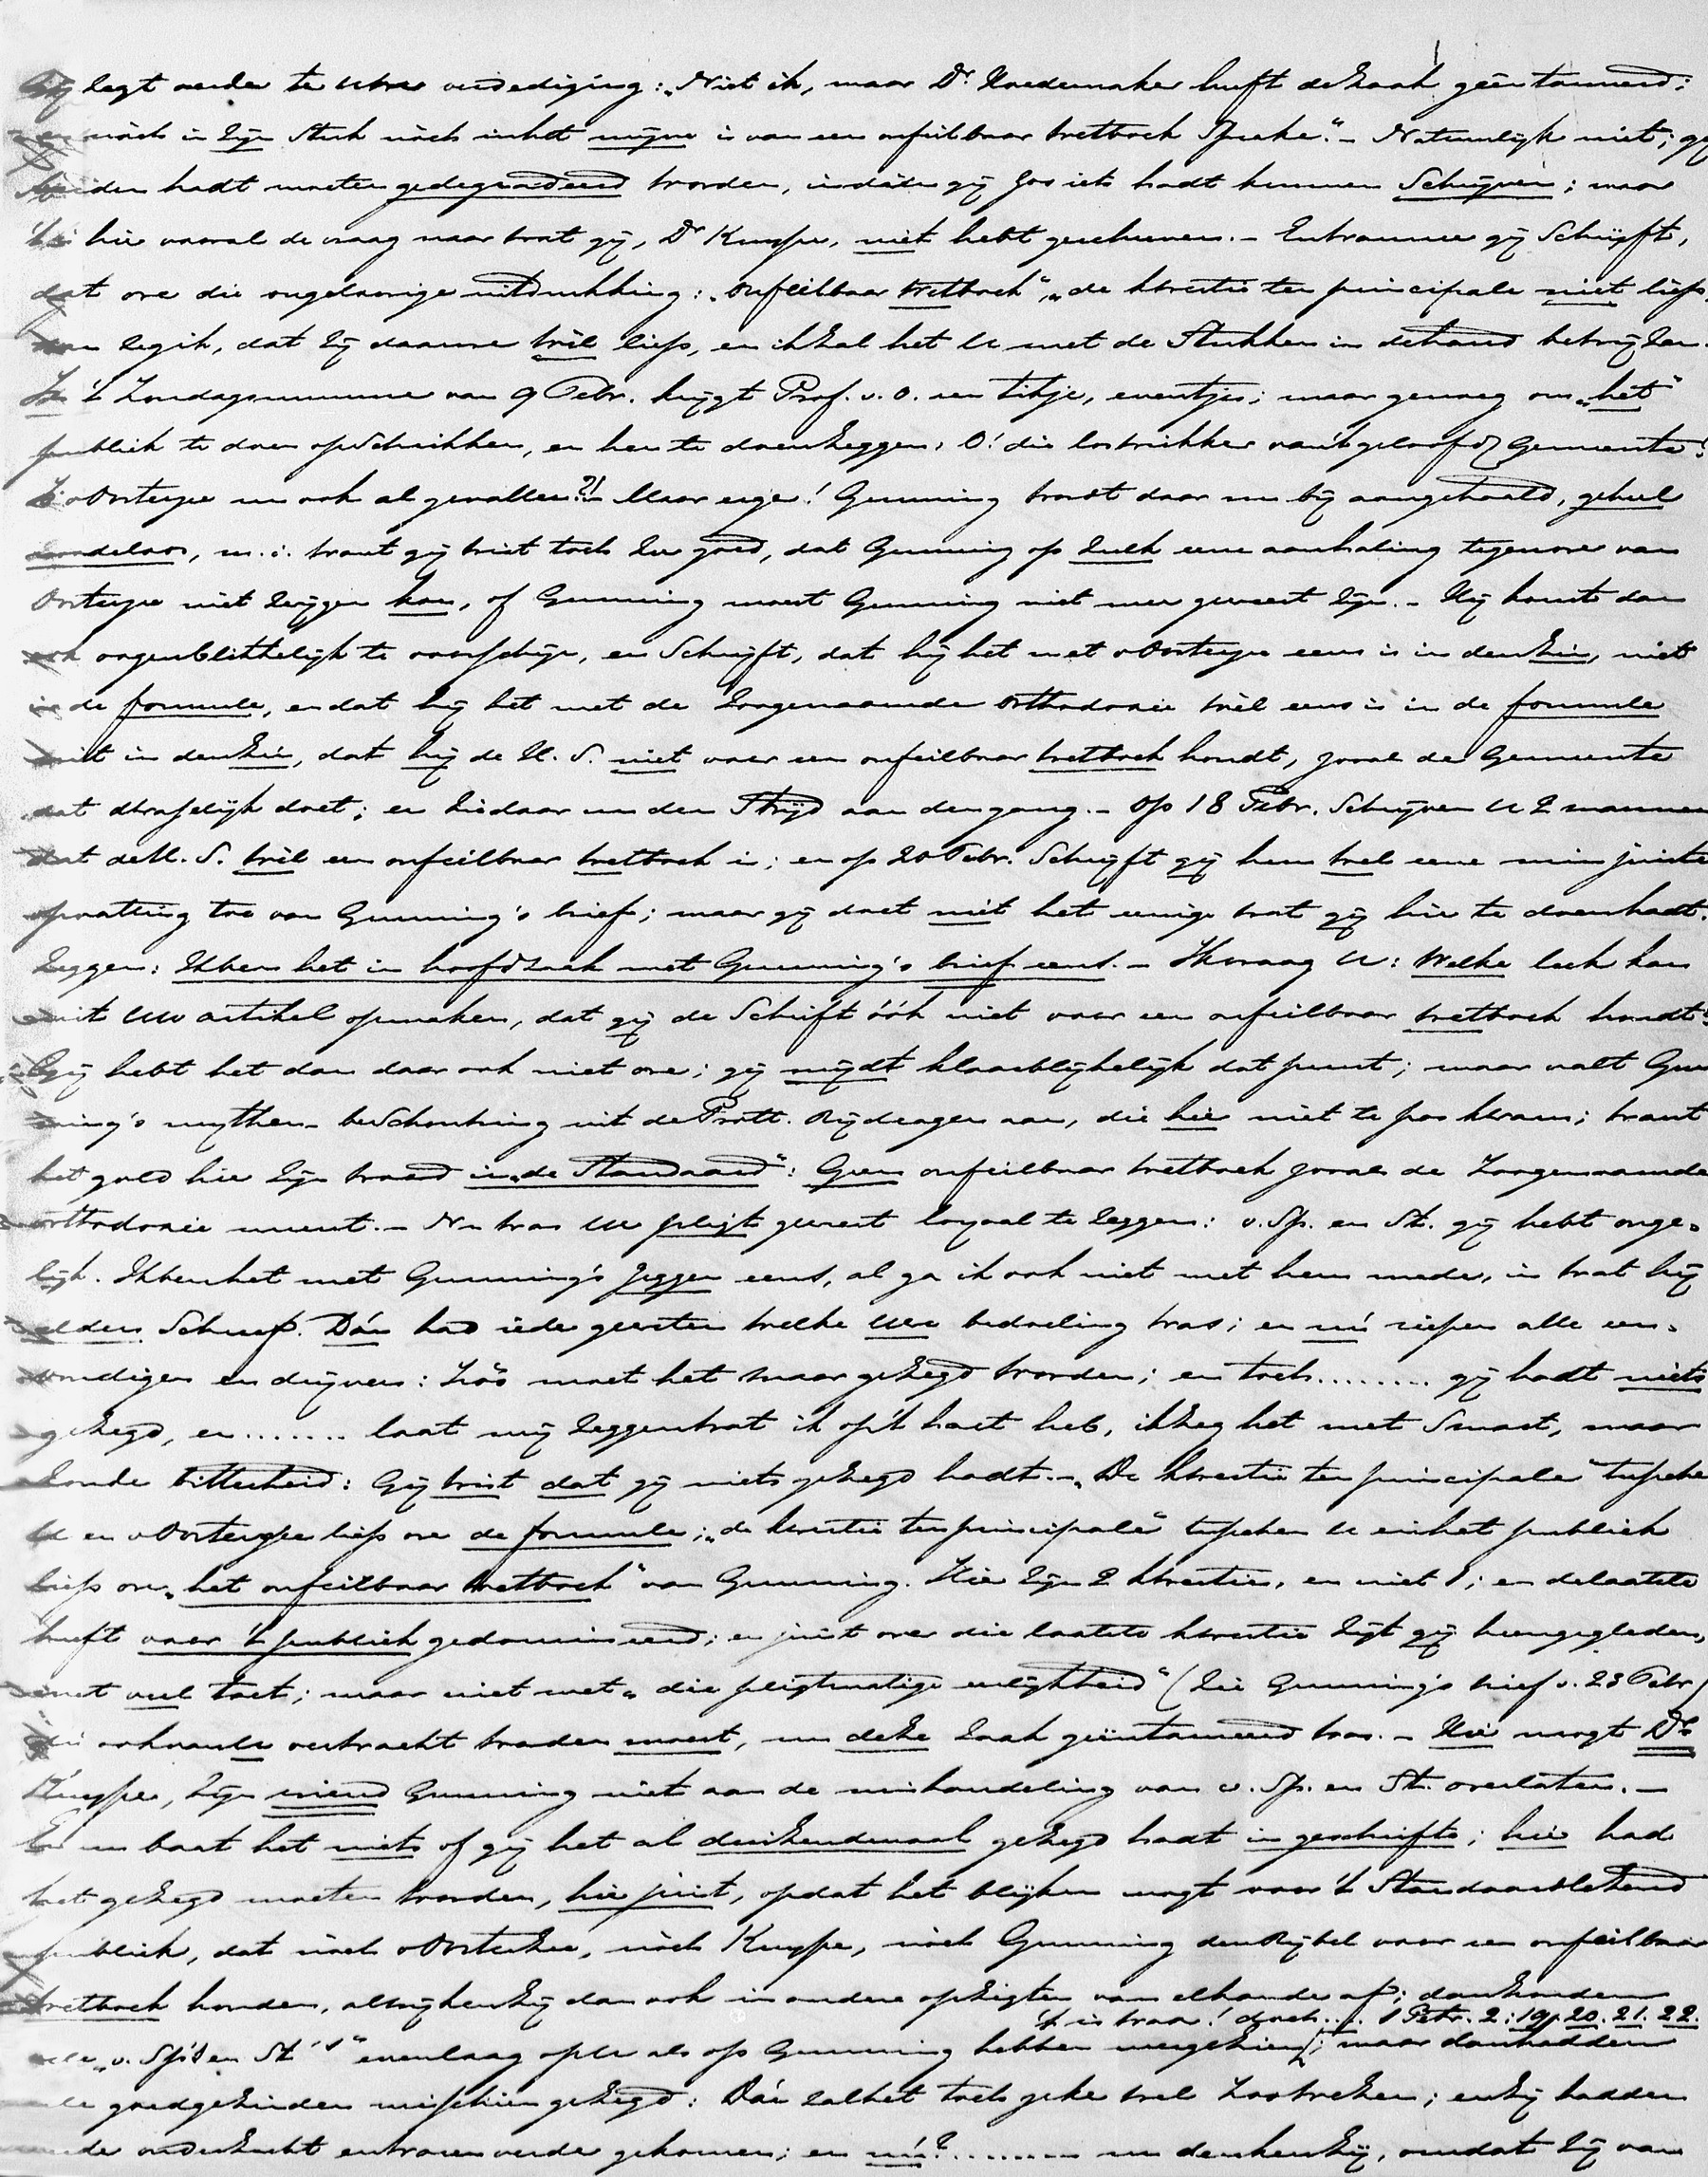 Gij legt verder te uwer verdediging: „Niet ik, maar Dr. Hoedemaker heeft de zaak geëntameerd;
en nòch in zijn stuk nòch in het mijne is van een onfeilbaar wetboek sprake." – Natuurlijk niet; gij
beiden hadt moeten gedegradeerd worden, indien gij zoo iets hadt kunnen schrijven; maar
't is hier vooral de vraag naar wat gij, Dr Kuyper, niet hebt geschreven. – En waar gij schrijft,
dat over die ongelukkige uitdrukking: „onfeilbaar wetboek", „de kwestie ten principale niet liep
dan zeg ik, dat zij daarover wèl liep, en ik zal het U met de stukken in de hand bewijzen.
In 't Zondagsnummer van 9 Febr. krijgt Prof. v. O. een tikje, eventjes; maar genoeg om „het"
publiek te doen opschrikken, en hen te doen zeggen: O! die lostrikker van 't geloof der Gemeente!
Is v Oosterzee nu ook al gevallen?! – Maar erger! Gunning wordt daar nu bij aangehaald, geheel
noodeloos, m. i. want gij wist toch zeer goed, dat Gunning op zulk eene aanhaling tegenover van
Oosterzee niet zwijgen kon, of Gunning moest Gunning niet meer geweest zijn. – Hij komt dan
ook oogenblikkelijk te voorschijn, en schrijft, dat hij het met v Oosterzee eens is in den zin, niet
in de formule, en dat hij het met de zoogenaamde orthodoxie wèl eens is in de formule
niet in den zin, dat hij de H. S. niet voor een onfeilbaar wetboek houdt, zooals de Gemeente
dat dwaselijk doet; en ziedaar nu den strijd aan den gang. – Op 18 Febr. schrijven U 2 mannen
dat de H. S. wèl een onfeilbaar wetboek is; en op 20 Febr. schrijft gij hun wel eene min juiste
opvatting toe van Gunning's brief; maar gij doet niet het eenige wat gij hier te doen hadt.
Zeggen: Ik ben het in hoofdzaak met Gunning's brief eens. – Ik vraag U: Welke leek kan
uit uw artikel opmaken, dat gij de Schrift óók niet voor een onfeilbaar wetboek houdt?
Gij hebt het dan daar ook niet over; gij mijdt klaarblijkelijk dat punt; maar valt Gun
ning's mythen-beschouwing uit de Prott. Bijdragen aan, die hier niet te pas kwam; want
het gold hier zijn woord in „de Standaard": Geen onfeilbaar wetboek zooals de zoogenaamde
orthodoxie meent. – Nu was uw pligt geweest loyaal te zeggen: v. Sp. en St. gij hebt onge-
lijk. Ik ben het met Gunning's zeggen eens, al ga ik ook niet met hem mede, in wat hij
elders schreef. Dán had ieder geweten welke uw bedoeling was; en nú riepen alle een-
voudigen en drijvers: Zóó moet het maar gezegd worden; en toch........ gij hadt niets
gezegd, en....... laat mij zeggen wat ik op 't hart heb, ik zeg het met smart, maar
zonder bitterheid: Gij wist dat gij niets gezegd hadt. – „De kwestie ten principale" tusschen
U en v Oosterzee liep over de formule; „de kwestie ten principale" tusschen U en het publiek
liep over „het onfeilbaar wetboek" van Gunning. Hier zijn 2 kwesties, en niet 1; en de laatste
heeft voor 't publiek gedomineerd; en juist over die laatste kwestie zijt gij heengegleden,
met veel tact; maar niet met „die pligtmatige eerlijkheid" (zie Gunning's brief v. 23 Febr.)
die verwacht worden moest, nu deze zaak geëntameerd was. – Hier mogt Dr
Kuyper, zijn vriend Gunning niet aan de mishandeling van v. Sp. en St. overlaten. –
En nu baat het niets of gij het al duizendmaal gezegd hadt in geschrifte; hier had
het gezegd moeten worden, hier juist, opdat het blijken mogt voor 't Standaardlezend
publiek, dat nòch v Oosterzee, nòch Kuyper, nòch Gunning den Bijbel voor een onfeilbaar
wetboek houden, al wijken zij dan ook in andere opzigten van elkander af; dan zouden
't is waar! doch... 1 Petr. 2: 19. 20. 21. 22.
alle „v. Sp's en St's" even laag op U als op Gunning hebben neergezien; maar dan hadden
alle goedgezinden misschien gezegd: Dán zal het toch zeker wel zoo wezen; en zij hadden
onderzocht en waren verder gekomen; en nú?......... nu denken zij, omdat zij van